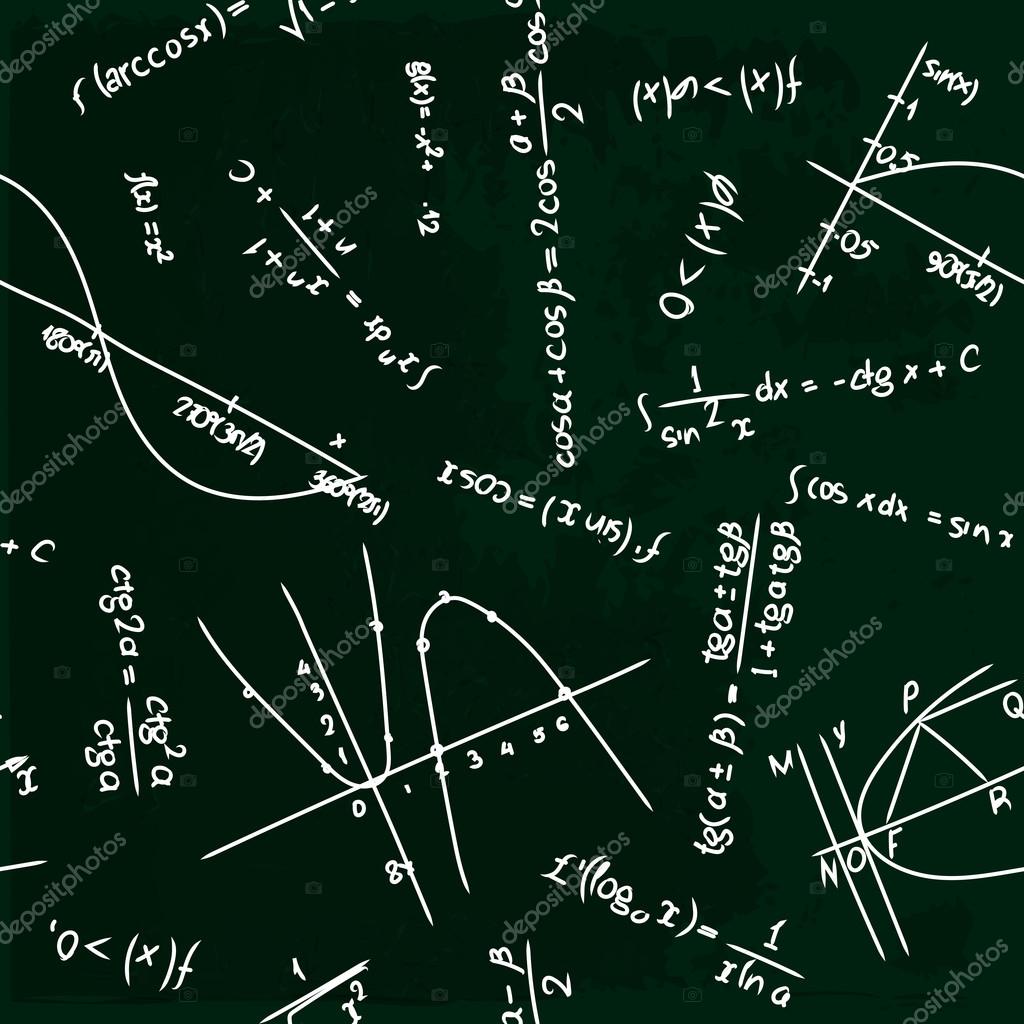 f'(arccosx)=
√1-
g(x)= -x²+ 12
cosα+cosβ=2cos α+β/2 cos
f(x)>g(x)
sin(x)
1
0.5
-0.5
-1
90°(π/2)
f(x)=x²
∫xⁿdx = xⁿ⁺¹/n+1 + C
g(x)>0
180°(π)
270°(3π/2)
x
360°(2π)
∫ 1/sin²x dx = -ctg x + C
f'(sin x) = cosx
∫cos xdx = sin x
+ C
ctg2α = ctg²α/ctgα
tg(α±β) = tgα±tgβ/1+tgαtgβ
4
3
2
1
0
1
2
3
4
5
6
8
M
y
P
Q
R
N
O
F
x
f'(log₀ x)= 1/xlna
f(x)>0,
1
x²
α-β/2
depositphotos